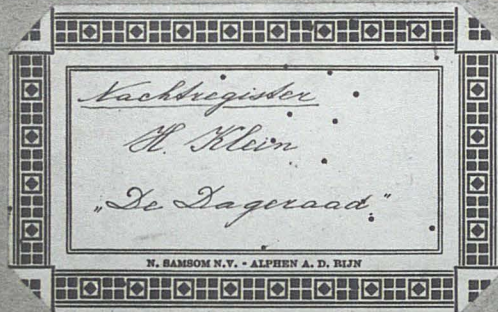 Nachtregister
H. Klein
„De Dageraad"
N. SAMSOM N.V. - ALPHEN A. D. RIJN